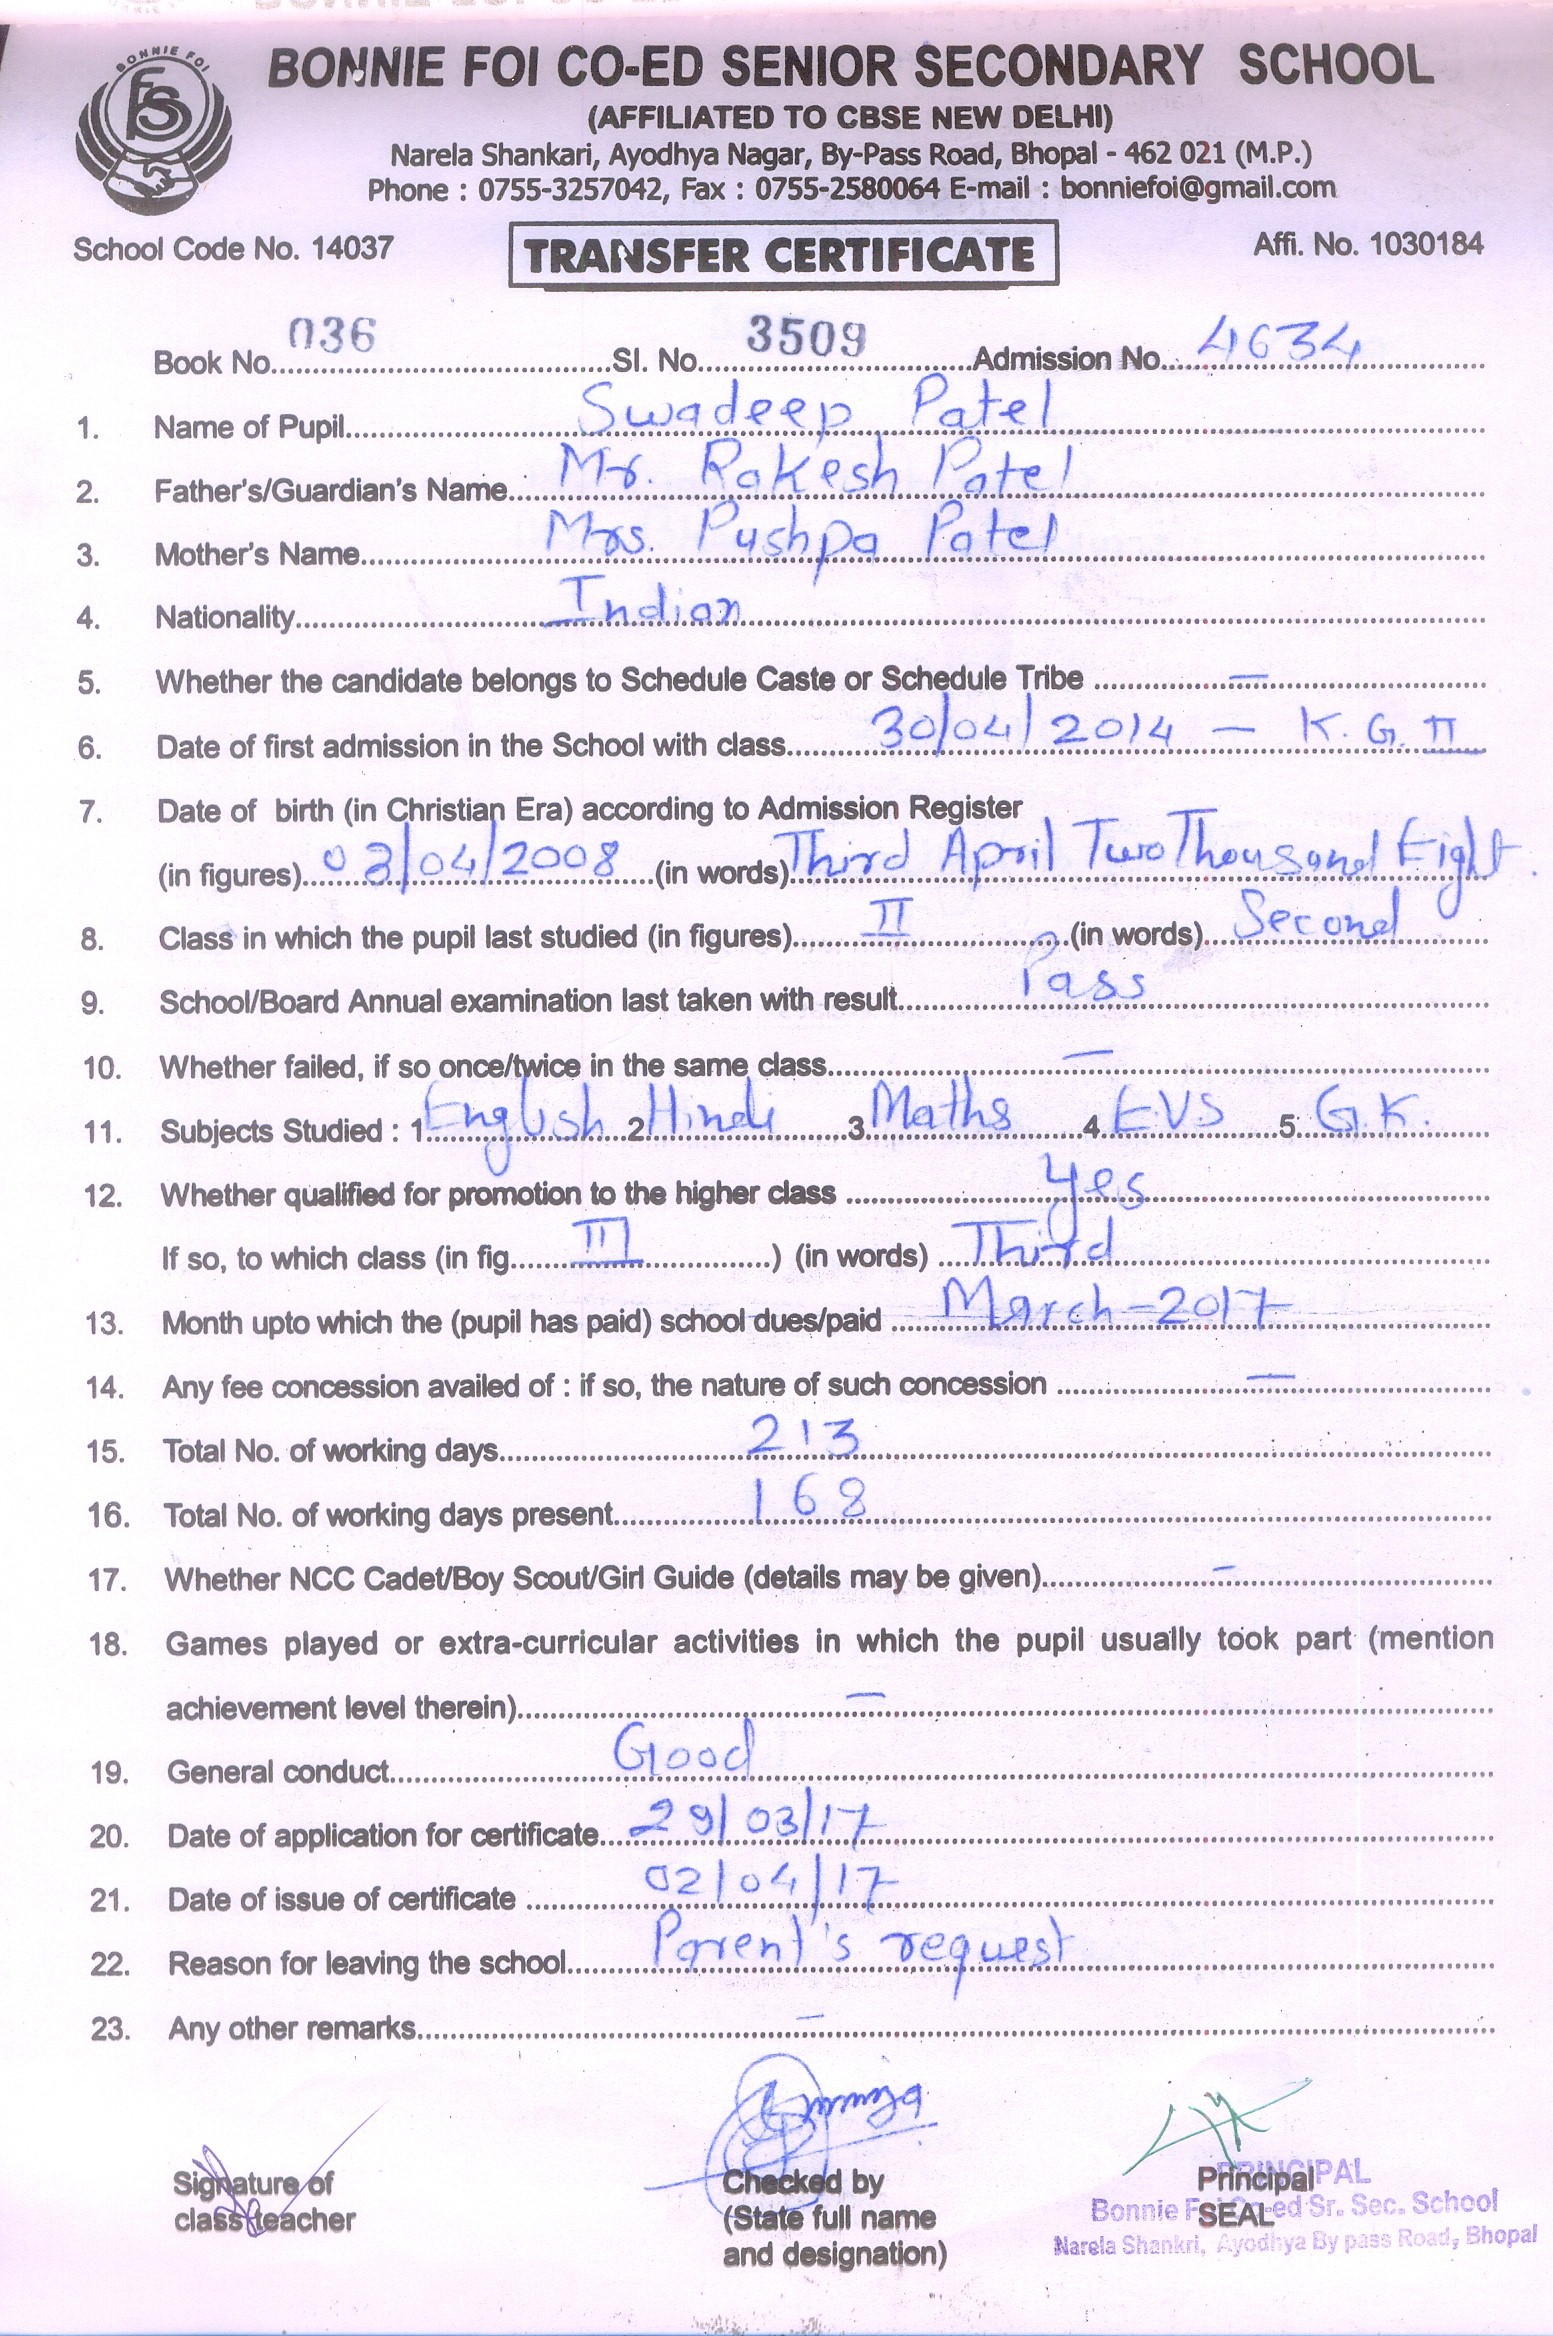 BONNIE FOI
FS
BONNIE FOI CO-ED SENIOR SECONDARY SCHOOL
(AFFILIATED TO CBSE NEW DELHI)
Narela Shankari, Ayodhya Nagar, By-Pass Road, Bhopal - 462 021 (M.P.)
Phone : 0755-3257042, Fax : 0755-2580064 E-mail : bonniefoi@gmail.com
School Code No. 14037 TRANSFER CERTIFICATE Affi. No. 1030184
Book No. 036 Sl. No. 3509 Admission No. 4634
1. Name of Pupil Swadeep Patel
2. Father's/Guardian's Name Mr. Rakesh Patel
3. Mother's Name Mrs. Pushpa Patel
4. Nationality Indian
5. Whether the candidate belongs to Schedule Caste or Schedule Tribe —
6. Date of first admission in the School with class 30/04/2014 — K.G. II
7. Date of birth (in Christian Era) according to Admission Register
(in figures) 03/04/2008 (in words) Third April Two Thousand Eight.
8. Class in which the pupil last studied (in figures) II (in words) Second
9. School/Board Annual examination last taken with result Pass
10. Whether failed, if so once/twice in the same class —
11. Subjects Studied : 1 English 2 Hindi 3 Maths 4 EVS 5 G.K.
12. Whether qualified for promotion to the higher class Yes
If so, to which class (in fig. III ) (in words) Third
13. Month upto which the (pupil has paid) school dues/paid March-2017
14. Any fee concession availed of : if so, the nature of such concession —
15. Total No. of working days 213
16. Total No. of working days present 168
17. Whether NCC Cadet/Boy Scout/Girl Guide (details may be given) —
18. Games played or extra-curricular activities in which the pupil usually took part (mention
achievement level therein) —
19. General conduct Good
20. Date of application for certificate 29/03/17
21. Date of issue of certificate 02/04/17
22. Reason for leaving the school Parent's request
23. Any other remarks —
Signature of
class teacher
Checked by
(State full name
and designation)
Principal
SEAL
PRINCIPAL
Bonnie Foi Co-ed Sr. Sec. School
Narela Shankri, Ayodhya By pass Road, Bhopal